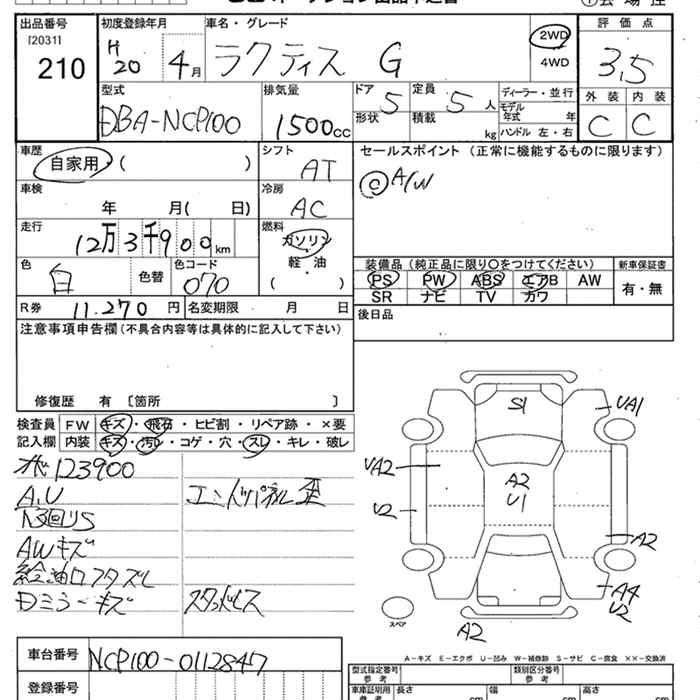 出品番号
[2031]
210
初度登録年月
H20 4月
車名・グレード
ラクティス G
2WD
4WD
評価点
3.5
外装 内装
C C
型式
DBA-NCP100
排気量
1500cc
ドア 5
形状
定員 5人
積載 kg
ディーラー・並行
モデル年式 年
ハンドル 左・右
車歴
自家用・( )
シフト
AT
セールスポイント (正常に機能するものに限ります)
◎ A/W
車検
年 月( 日)
冷房
AC
走行
12万3千900km
燃料
ガソリン
軽・油
( )
色
白
色替
色コード
070
装備品(純正品に限り○をつけてください)
PS PW ABS エアB AW
SR ナビ TV カワ
新車保証書
有・無
R券 11.270円
名変期限 月 日
後日品
注意事項申告欄(不具合内容等は具体的に記入して下さい)
修復歴 有 〔箇所 〕
検査員記入欄
FW キズ・飛石・ヒビ割・リペア跡・×要
内装 キズ・汚レ・コゲ・穴・スレ・キレ・破レ
123900
A.U
エンドパネル歪
AWキズ
給油口フタズレ
Dミラーキズ
スタッドレス
S1
UA1
UA2
A2
U1
U2
A2
A4
U2
A2
スペア
A-キズ E-エクボ U-凹み W-補修跡 S-サビ C-腐食 ××-交換済
車台番号
NCP100-0112847
登録番号
型式指定番号 参考
類別区分番号 参考
車庫証明用 参考
長さ cm
幅 cm
高さ cm